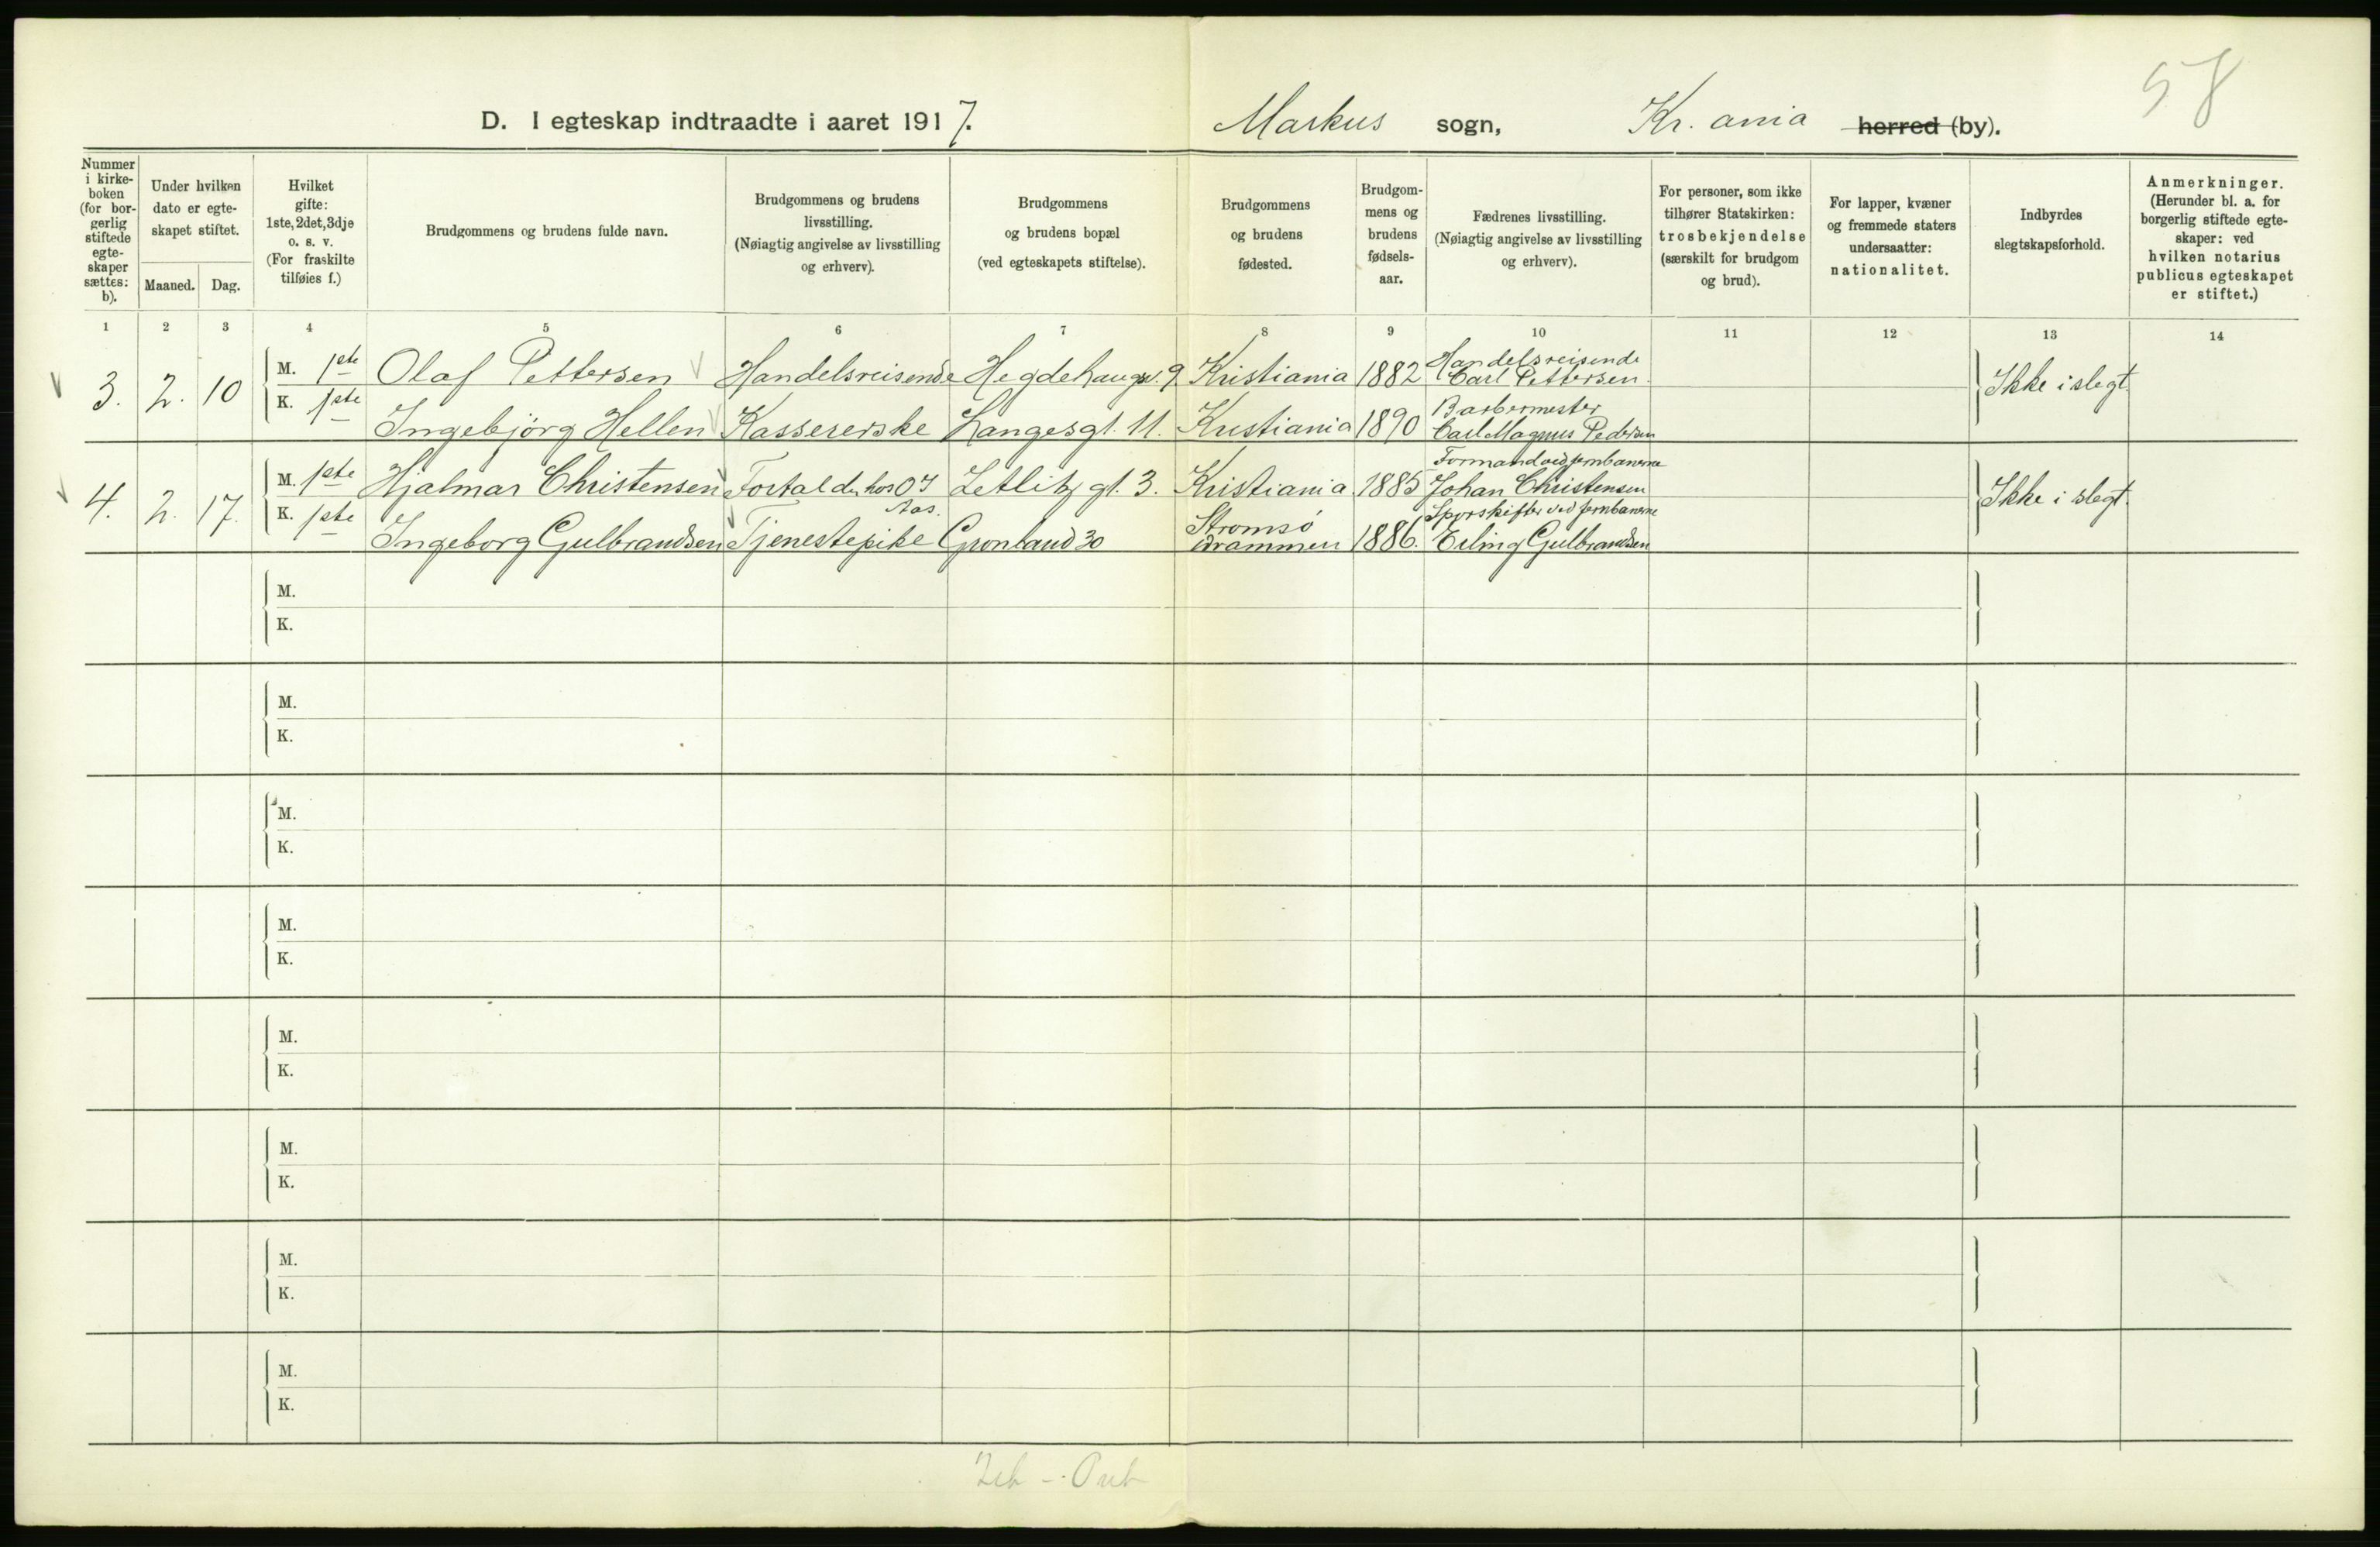 58
D. I egteskap indtraadte i aaret 1917. Markus sogn, Kr.ania herred (by).
Nummer i kirke-boken (for bor-gerlig stiftede egte-skaper sættes: b).
Under hvilken dato er egte-skapet stiftet.
Maaned. Dag.
Hvilket gifte: 1ste, 2det, 3dje o. s. v. (For fraskilte tilføies f.)
Brudgommens og brudens fulde navn.
Brudgommens og brudens livsstilling. (Nøiagtig angivelse av livsstilling og erhverv).
Brudgommens og brudens bopæl (ved egteskapets stiftelse).
Brudgommens og brudens fødested.
Brudgom-mens og brudens fødsels-aar.
Fædrenes livsstilling. (Nøiagtig angivelse av livsstilling og erhverv).
For personer, som ikke tilhører Statskirken: trosbekjendelse (særskilt for brudgom og brud).
For lapper, kvæner og fremmede staters undersaatter: nationalitet.
Indbyrdes slegtskapsforhold.
Anmerkninger. (Herunder bl. a. for borgerlig stiftede egte-skaper: ved hvilken notarius publicus egteskapet er stiftet.)
1 2 3 4 5 6 7 8 9 10 11 12 13 14
3. 2. 10 M. 1ste Olaf Pettersen Handelsreisende Hegdehaugsv. 9 Kristiania 1882 Handelsreisende Carl Pettersen Ikke i slegt
K. 1ste Ingebjörg Hellen Kassererske Langesgt. 11. Kristiania 1890 Barbermester Carl Magnus Pedersen
4. 2. 17. M. 1ste Hjalmar Christensen hos Aas. Zetlitz gt. 3. Kristiania 1885 Formand ved jernbanerne Johan Christensen Ikke i slegt
K. 1ste Ingeborg Gulbrandsen Tjenestepike Grønland 30 Strømsø Drammen 1886. Sporskifter ved jernbanerne Erling Gulbrandsen
M.
K.
M.
K.
M.
K.
M.
K.
M.
K.
M.
K.
M.
K.
M.
K.